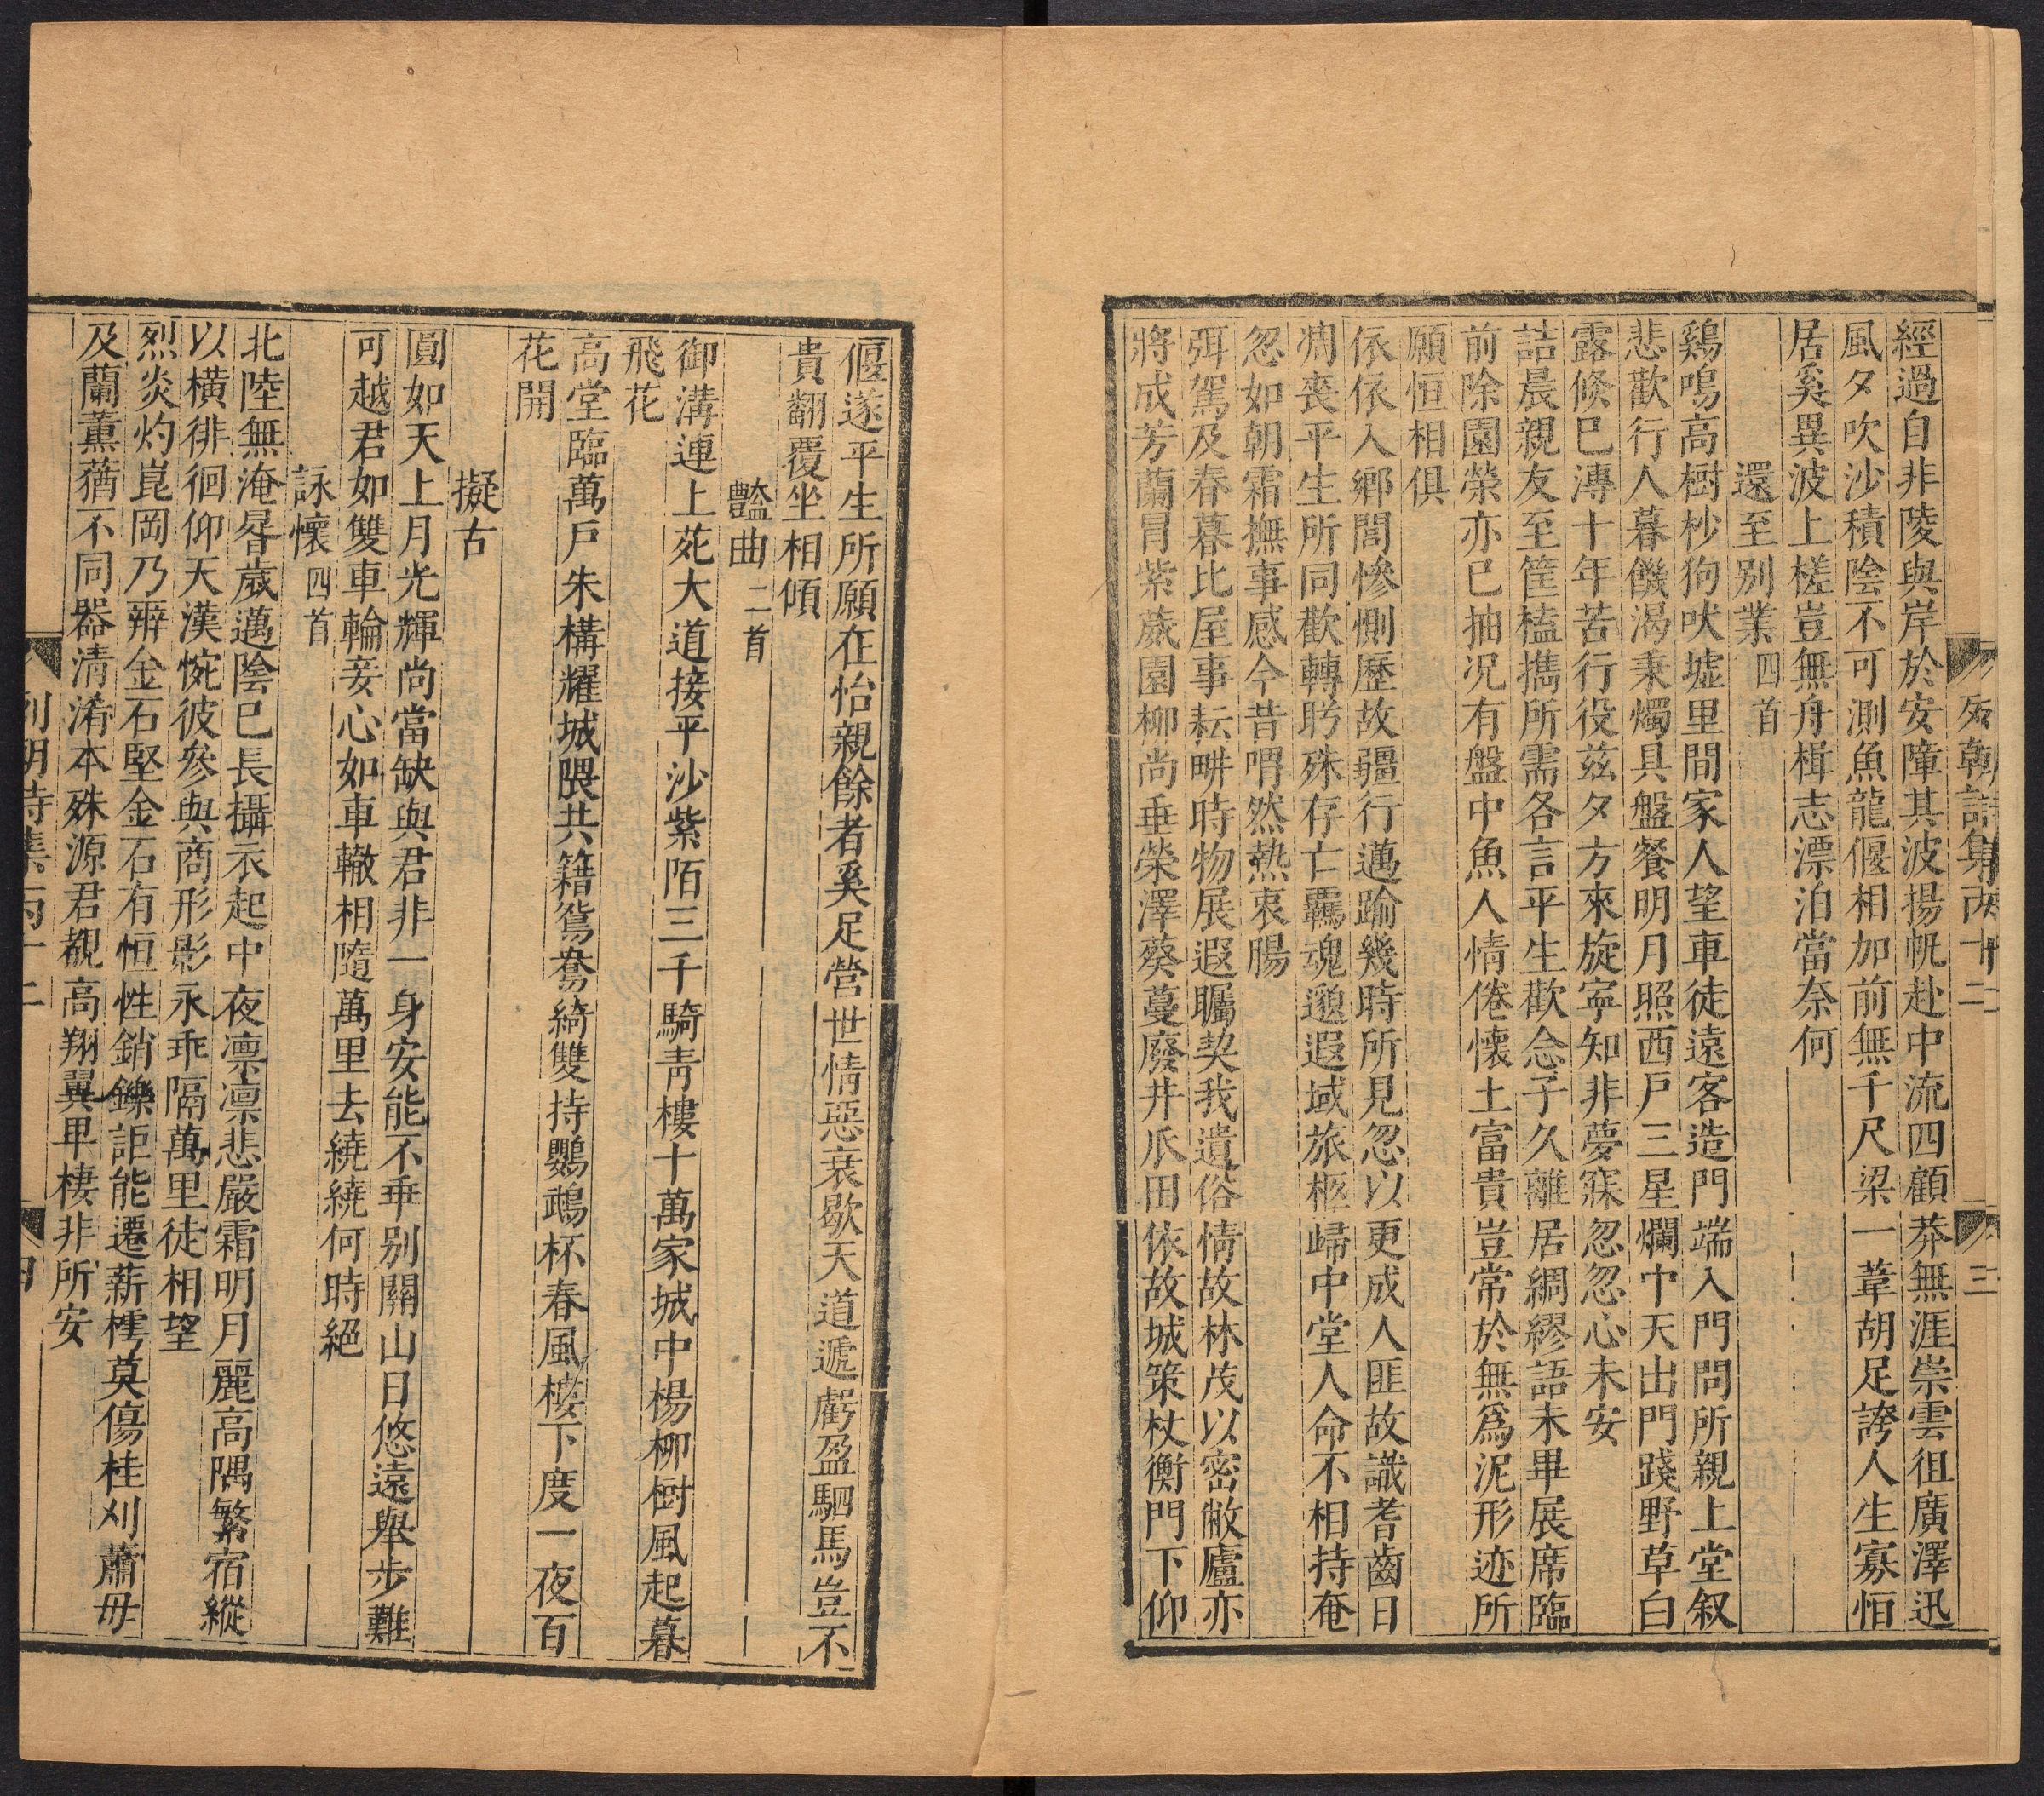 列朝詩集丙十二
三
經過自非陵與岸於安障其波揚帆赴中流四顧莽無涯崇雲徂廣澤迅
風夕吹沙積陰不可測魚龍偃相加前無千尺梁一葦胡足誇人生寡恒
居奚異波上槎豈無舟楫志漂泊當奈何
還至別業四首
鷄鳴高樹杪狗吠墟里間家人望車徒遠客造門端入門問所親上堂叙
悲歡行人暮饑渴秉燭具盤餐明月照西戶三星爛中天出門踐野草白
露倏已漙十年苦行役兹夕方來旋寧知非夢寐忽忽心未安
詰晨親友至筐榼攜所需各言平生歡念子久離居綢繆語未畢展席臨
前除園榮亦已抽况有盤中魚人情倦懷土富貴豈常於無爲泥形迹所
願恒相俱
依依入鄉閭慘惻歷故疆行邁踰幾時所見忽以更成人匪故識耆齒日
凋喪平生所同歡轉盻殊存亡羈魂邈遐域旅柩歸中堂人命不相持奄
忽如朝霜撫事感今昔喟然熱衷腸
弭駕及春暮比屋事耘畊時物展遐矚契我遺俗情故林茂以密敝廬亦
將成芳蘭冒紫蕨園柳尚垂榮澤葵蔓廢井瓜田依故城策杖衡門下仰
偃遂平生所願在怡親餘者奚足營世情惡衰歇天道遞虧盈駟馬豈不
貴翻覆坐相傾
豔曲二首
御溝連上苑大道接平沙紫陌三千騎靑樓十萬家城中楊柳樹風起暮
飛花
高堂臨萬戶朱構耀城隈共籍鴛鴦綺雙持鸚鵡杯春風樓下度一夜百
花開
擬古
圓如天上月光輝尚當缺與君非一身安能不垂別關山日悠遠舉步難
可越君如雙車輪妾心如車轍相隨萬里去繞繞何時絕
詠懷四首
北陸無淹晷歲邁陰已長攝衣起中夜凛凛悲嚴霜明月麗高隅繁宿縱
以橫徘徊仰天漢惋彼參與商形影永乖隔萬里徒相望
烈炎灼崑岡乃辨金石堅金石有恒性銷鑠詎能遷薪樗莫傷桂刈蕭毋
及蘭薰蕕不同器清淆本殊源君覩高翔翼甲棲非所安
列朝詩集丙十二
四